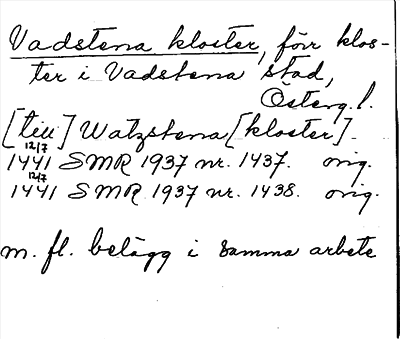 Vadstena kloster, förr klos-
ter i Vadstena stad,
Österg. l.
[till] Watzstena [kloster].
12/7
1441 SMR 1937 nr. 1437. orig.
12/7
1441 SMR 1937 nr. 1438. orig.
m. fl. belägg i samma arbete